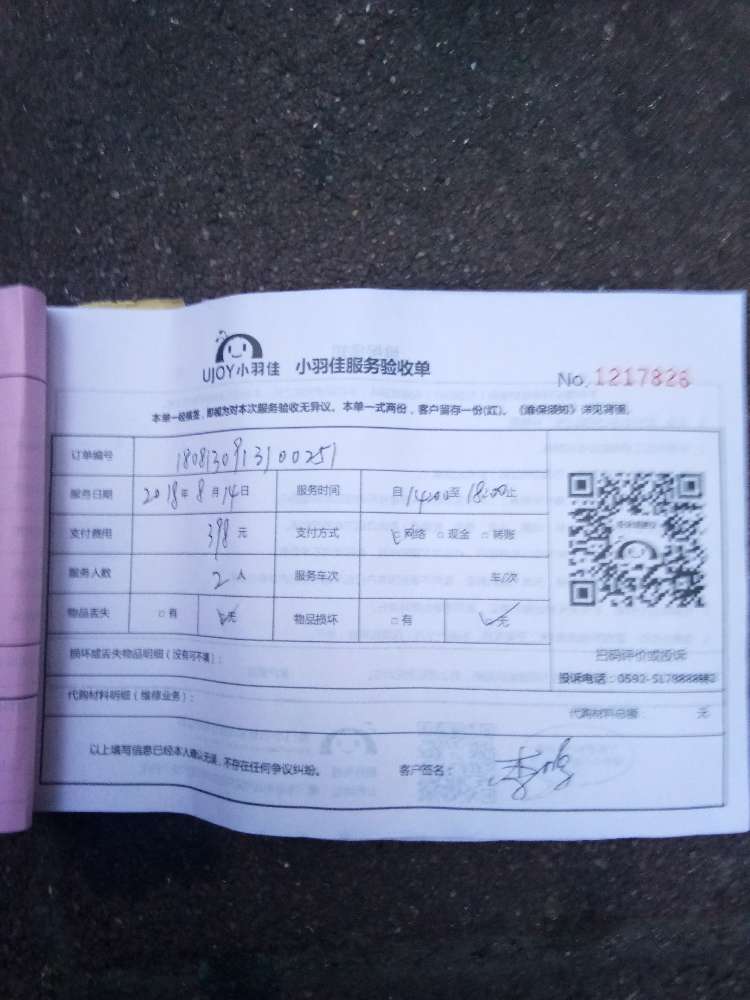 UJOY小羽佳 小羽佳服务验收单
No. 1217826
本单一经填签，即视为对本次服务验收无异议。本单一式两份，客户留存一份(红)。《维保须知》详见背面。
订单编号 1808130913100251
服务日期 2018年8月14日 服务时间 自14:00至18:00止
支付费用 398元 支付方式 网络 现金 转账
服务人数 2人 服务车次 车/次
物品丢失 有 无 物品损坏 有 无
扫码评价或投诉
损坏或丢失物品明细（没有可不填）：
投诉电话：0592-5179888
代购材料明细（维修业务）：
代购材料总额： 元
以上填写信息已经本人确认无误，不存在任何争议纠纷。 客户签名：